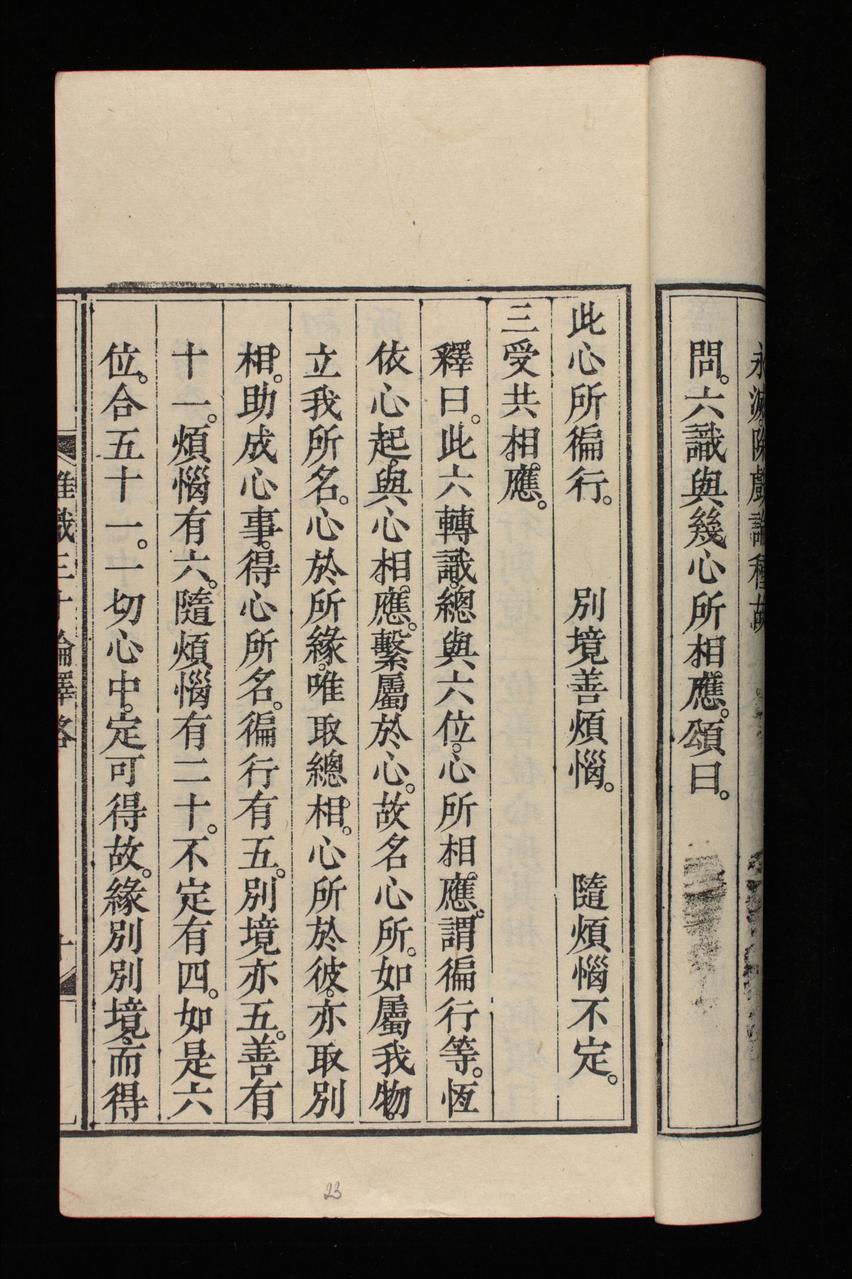 永滅除戲論種故
問。六識與幾心所相應。頌曰。
此心所徧行。　別境善煩惱。　隨煩惱不定。
三受共相應。
釋曰。此六轉識。總與六位。心所相應。謂徧行等。恆
依心起。與心相應。繫屬於心。故名心所。如屬我物。
立我所名。心於所緣。唯取總相。心所於彼。亦取別
相。助成心事。得心所名。徧行有五。別境亦五。善有
十一。煩惱有六。隨煩惱有二十。不定有四。如是六
位。合五十一。一切心中。定可得故。緣別別境。而得
唯識三十論釋略
十
23